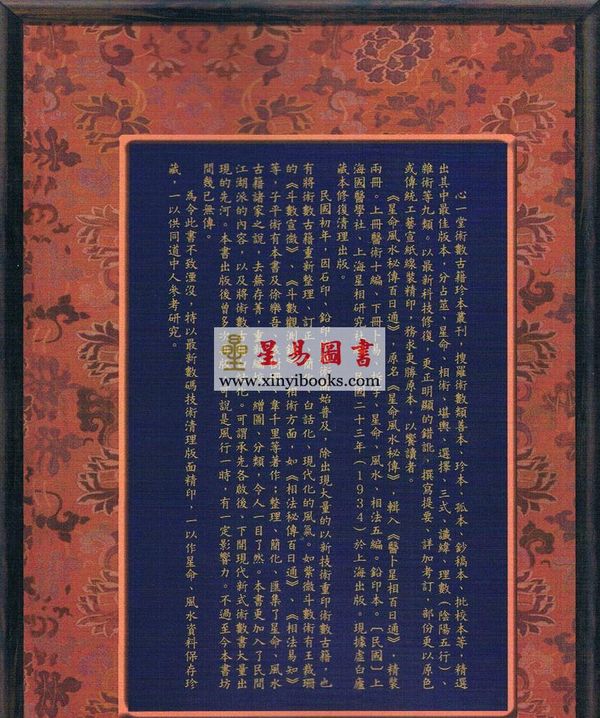 心一堂術數古籍珍本叢刊，搜羅術數類善本、珍本、孤本、鈔稿本、批校本等，精選
出其中最佳版本，分占筮、星命、相術、堪輿、選擇、三式、讖緯、理數（陰陽五行）、
雜術等九類。以最新科技修復，更正明顯的錯訛，撰寫提要、詳加考訂，部份更以原色
或傳統工藝宣紙線裝精印，務求更勝原本，以饗讀者。
《星命風水秘傳百日通》，原名《星命風水秘傳》，輯入《醫卜星相百日通》，精裝
兩冊。上冊醫術十編、下冊 星命、風水、相法五編，鉛印本。〔民國〕上
海國醫學社、上海星相研究 民國二十三年（1934）於上海出版。現據虛白廬
藏本修復清理出版。
民國初年，因石印、鉛印 術開始普及，除出現大量的以新技術重印術數古籍，也
有將術數古籍重新整理、訂正 白話化、現代化的風氣。如紫微斗數術有王裁珊
的《斗數宣微》、《斗數觀測 相術方面，如《相法秘傳百日通》、《相法易知》
等，子平術有本書及徐樂吾、 韋千里等著作，整理、簡化，匯集了星命、風水
古籍諸家之說，去蕪存菁，重 繪圖、分類，令人一目了然。本書更加入了民間
江湖派的內容，以及將術數古 化。可謂承先啟後，下開現代新式術數書大量出
現的先河。本書出版後曾多 說是風行一時，有一定影響力。不過至今本書坊
間幾已無傳。
為令此書不致湮沒，特以最新數碼技術清理版面精印，一以作星命、風水資料保存珍
藏，一以供同道中人參考研究。
星易圖書
www.xinyibooks.com